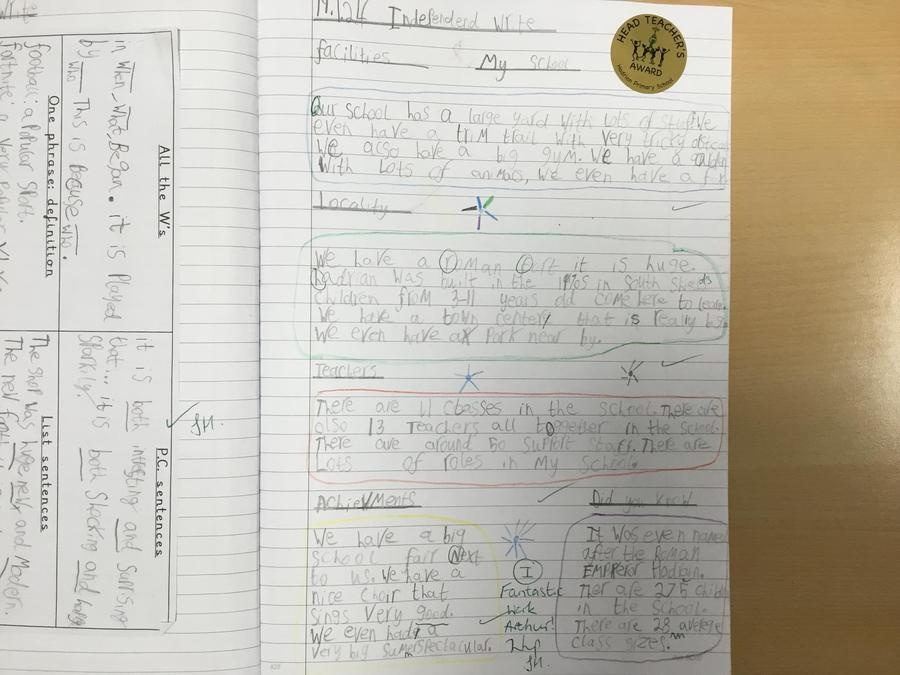 All the W's
in When, What, Began. it is Played
by Who This is because Who.
One phrase: definition
football: a Polular Sport.
fortnite: a Very
P.C. sentences
it is both intresting and Suprising
that... it is both Shocking and
Starkity.
List sentences
The shop was huge new and Modern.
The new
JH.
Independend Write
HEAD TEACHER'S
AWARD
Hadrian Primary School
facilities
My School
Our school has a large yard with lots of stuff. We
even have a trim trail with very tricky
We also have a big gym. We have a
With Lots of animals, We even have a
Locality
We have a roman fort it is huge.
hadrian was built in the in South Shields
Children from 3-11 years old come here to learn.
We have a town center, that is really big,
We even have a Park near by.
Teachers
There are 11 Classes in the school. There are
also 13 Teachers all together in the school.
There are around 50 Support Staff. There are
Lots of roles in My School.
Achievments
We have a big
school fair Next
to us. We have a
nice Choir that
sings Very good.
We even had a
Very big Sumer Spectacular.
I
Fantastic
work
Arthur!
2hp
JH.
Did you Know
It Was even named
after the Roman
EMPeror Hadrian.
Ther are 275
in the School.
There are 28 average
Class sizes.